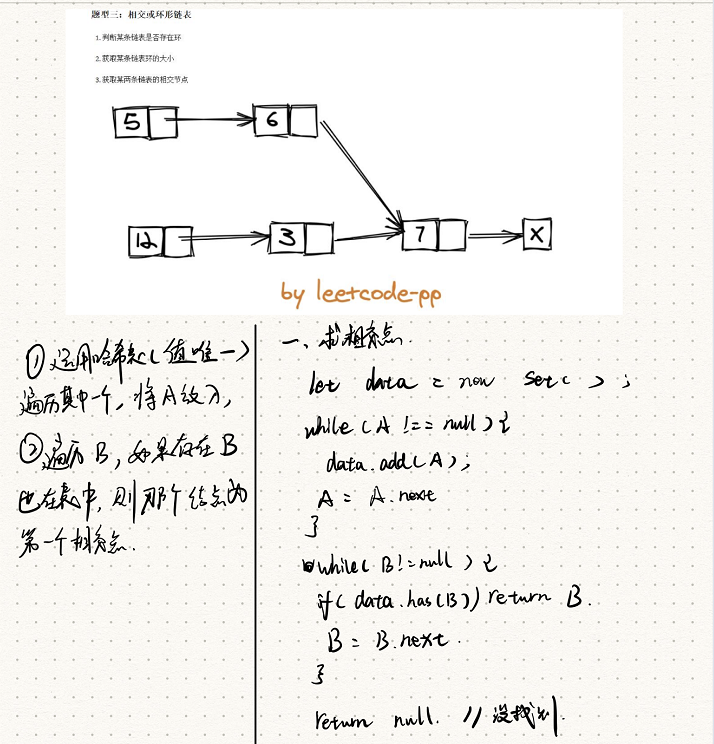 题型三：相交或环形链表
1.判断某条链表是否存在环
2.获取某条链表环的大小
3.获取某两条链表的相交节点
5
6
12
3
7
X
by leetcode-pp
① 运用哈希表（值唯一）
遍历其中一个，将A放入，
② 遍历B，如果存在B
也在表中，则那个结点为
第一个相交点.
一、求相交点.
let data = new Set( );
while (A !== null) {
data.add(A);
A = A.next
}
while( B != null ) {
if( data.has(B)) return B.
B = B.next.
}
return null. // 没找到.